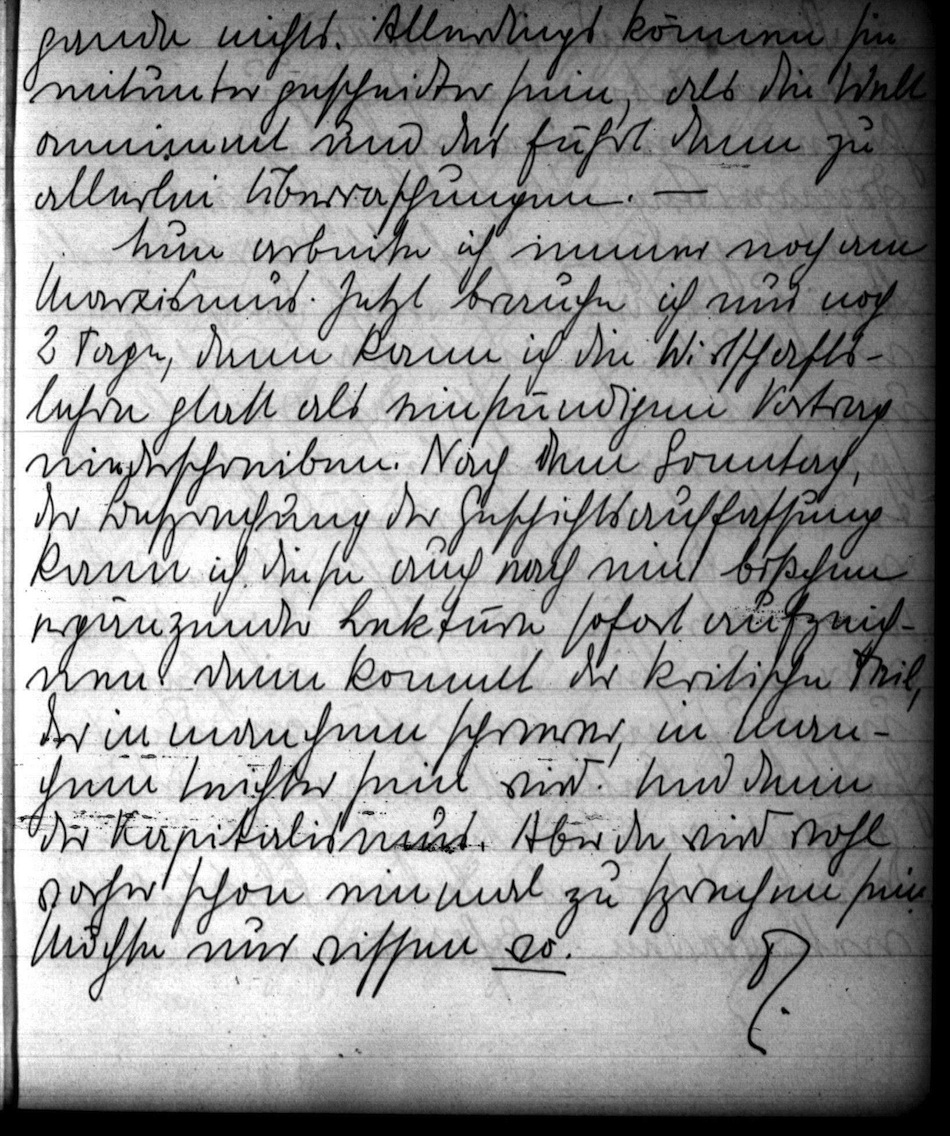 gende nichts. Allerdings können sie
mitunter gescheidter sein, als die Welt
annimmt und das führt dann zu
allerlei Überraschungen. —
Nun arbeite ich immer noch am
Marxismus. Jetzt brauche ich nur noch
2 Tage, dann kann ich die Wirtschafts-
lehre glatt als einstündigen Vortrag
niederschreiben. Nach dem Sonntag,
der Besprechung der Geschichtsauffassung
kann ich diese auch nach ein bißchen
ergänzender Lektüre sofort aufzeich-
nen dann kommt der kritische Teil,
der in manchem schwerer, in man-
chem leichter sein wird. Und dann
der Kapitalismus. Aber da wird wohl
vorher schon einmal zu sprechen sein
Möchte nur wissen wo.